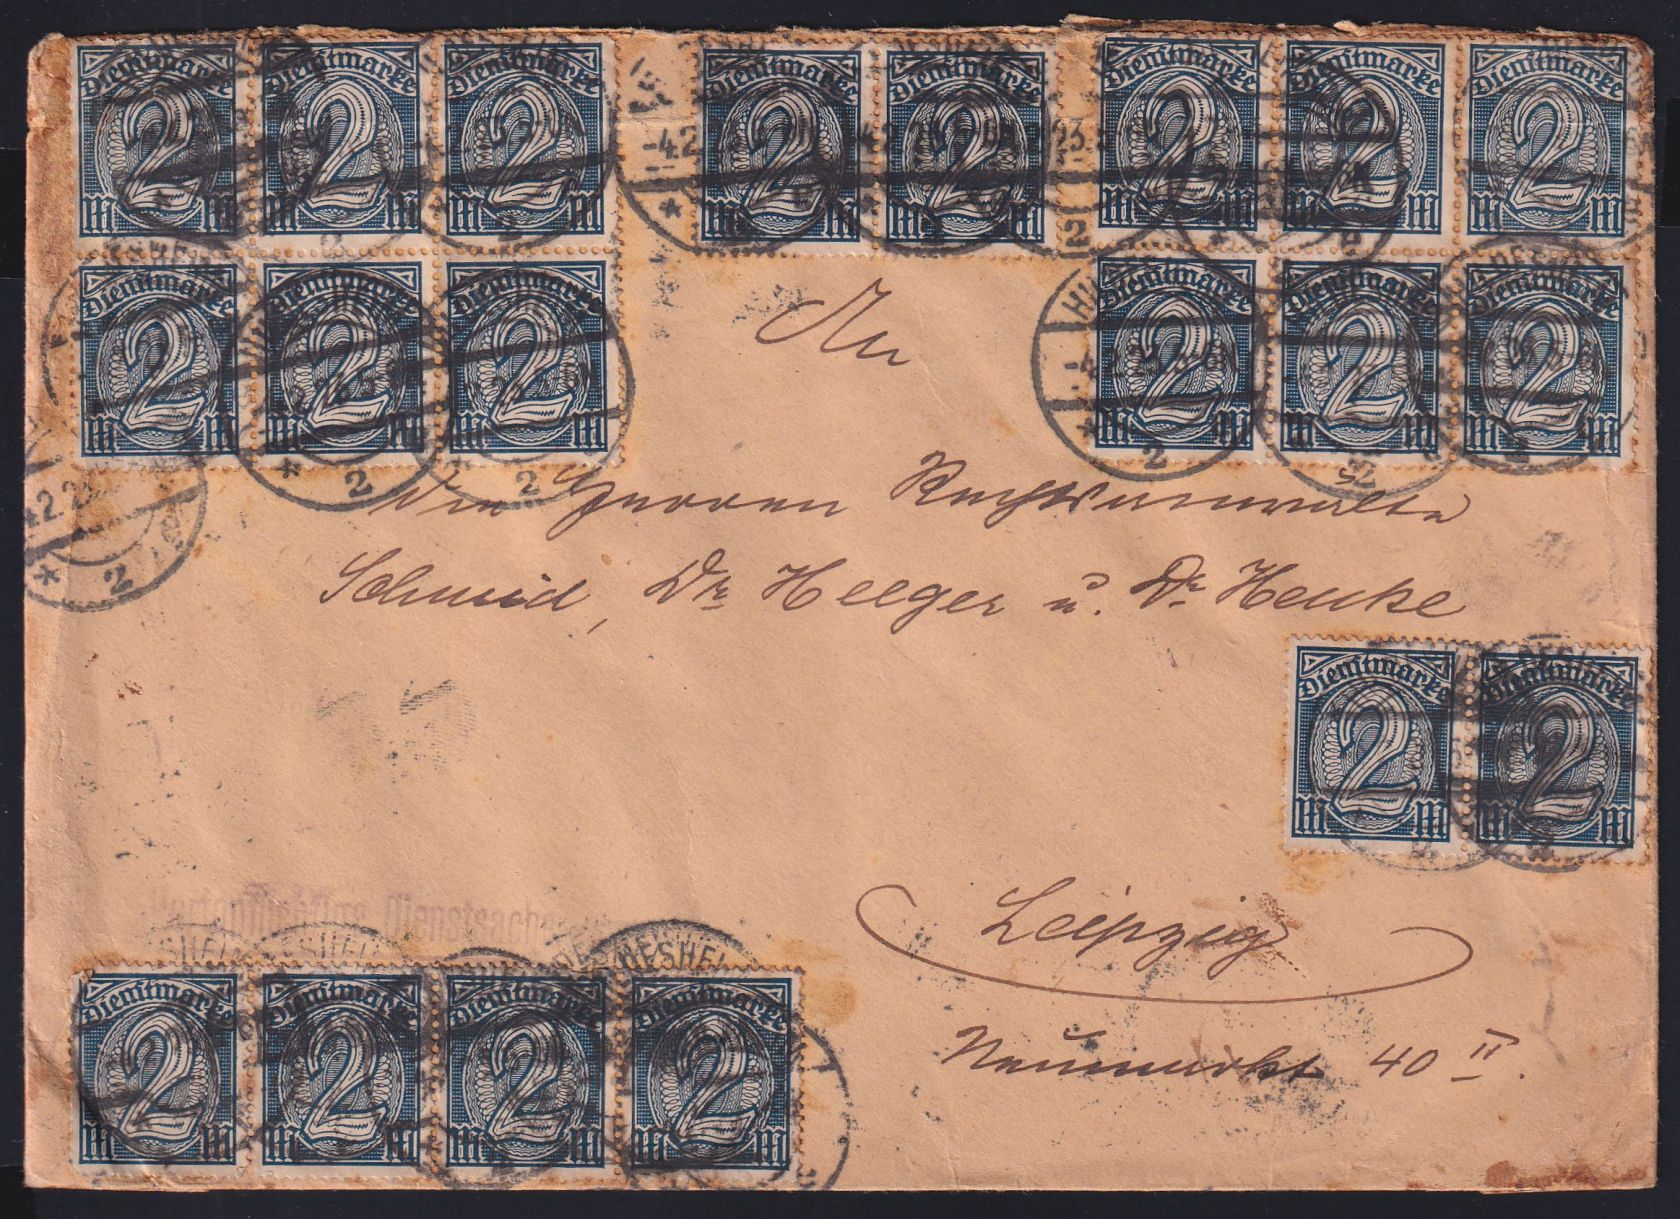 Dienstmarke Dienstmarke Dienstmarke Dienstmarke Dienstmarke Dienstmarke Dienstmarke Dienstmarke
2 2 2 2 2 2 2 2
M M M M M M M M M M M M M M M M
Dienstmarke Dienstmarke Dienstmarke Dienstmarke Dienstmarke Dienstmarke
2 2 2 2 2 2
M M M M M M M M M M M M
An
den Herren Rechtsanwälte
Schmid, Dr. Heeger u. Dr. Henke
Dienstmarke Dienstmarke
2 2
M M M M
Portopflichtige Dienstsache
Leipzig
Neumarkt 40 II.
Dienstmarke Dienstmarke Dienstmarke Dienstmarke
2 2 2 2
M M M M M M M M